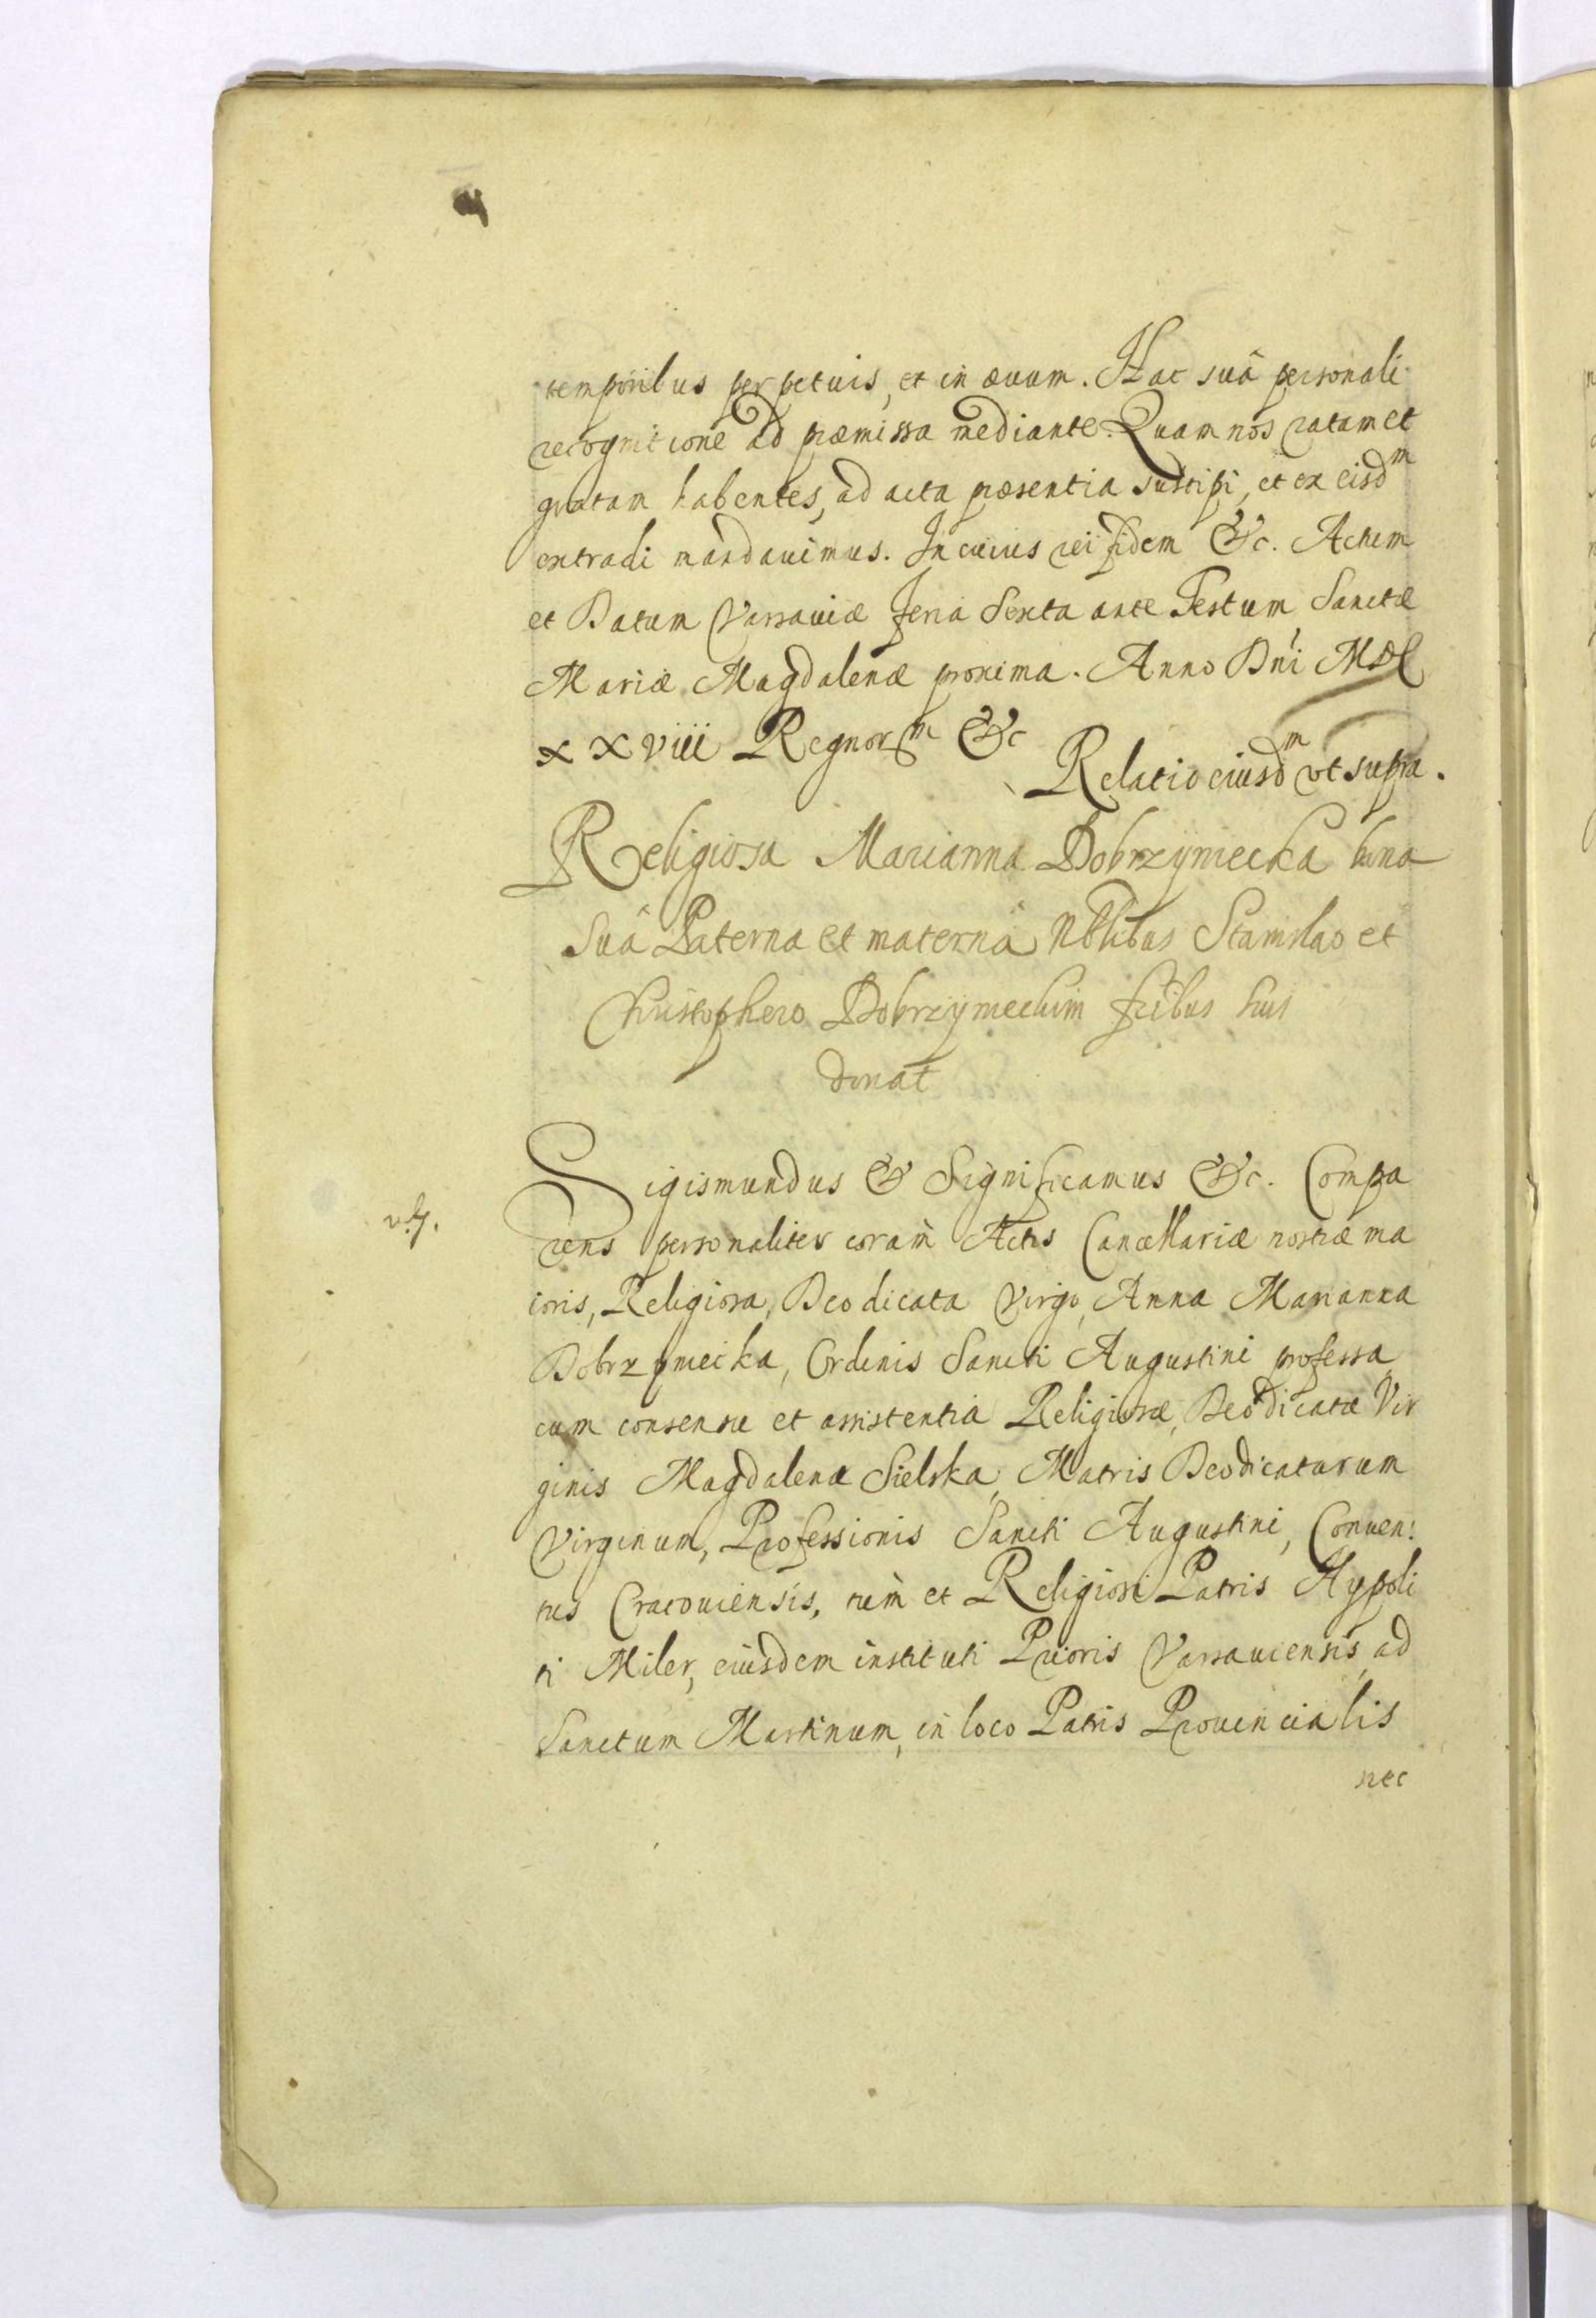 temporibus perpetuis, et in ævum. Hac suâ personali
recognitione ad præmissa mediante. Quam nos ratam et
gratam habentes, ad acta præsentia suscipi, et ex eisdm
extradi mandavimus. In cuius rei fidem &c. Actum
et Datum Varsaviæ feria Sexta ante Festum Sanctæ
Mariæ Magdalenæ proxima. Anno Dni MDC
xxviii Regnorm &c
Relatio eiusdm ut supra.
Religiosa Marianna Dobrzyniecka bona
Suâ Paterna et maternâ Nblibus Stanislao et
Christophero Dobrzynieckim fribus suis
donat
Sigismundus & Significamus &c. Compa
rens personaliter coram Actis Cancellariæ nostræ ma
ioris, Religiosa, Deo dicata Virgo, Anna Marianna
Dobrzyniecka, Ordinis Sancti Augustini professa
cum consensu et assistentia Religiosæ, Deo dicatæ Vir
ginis Magdalenæ Sielska, Matris Deo dicatarum
Virginum, Professionis Sancti Augustini, Conven:
tus Cracoviensis, tum et Religiosi Patris Hypoli
ti Miler, eiusdem instituti Prioris Varsaviensis, ad
Sanctum Martinum, in loco Patris Provincialis
nec